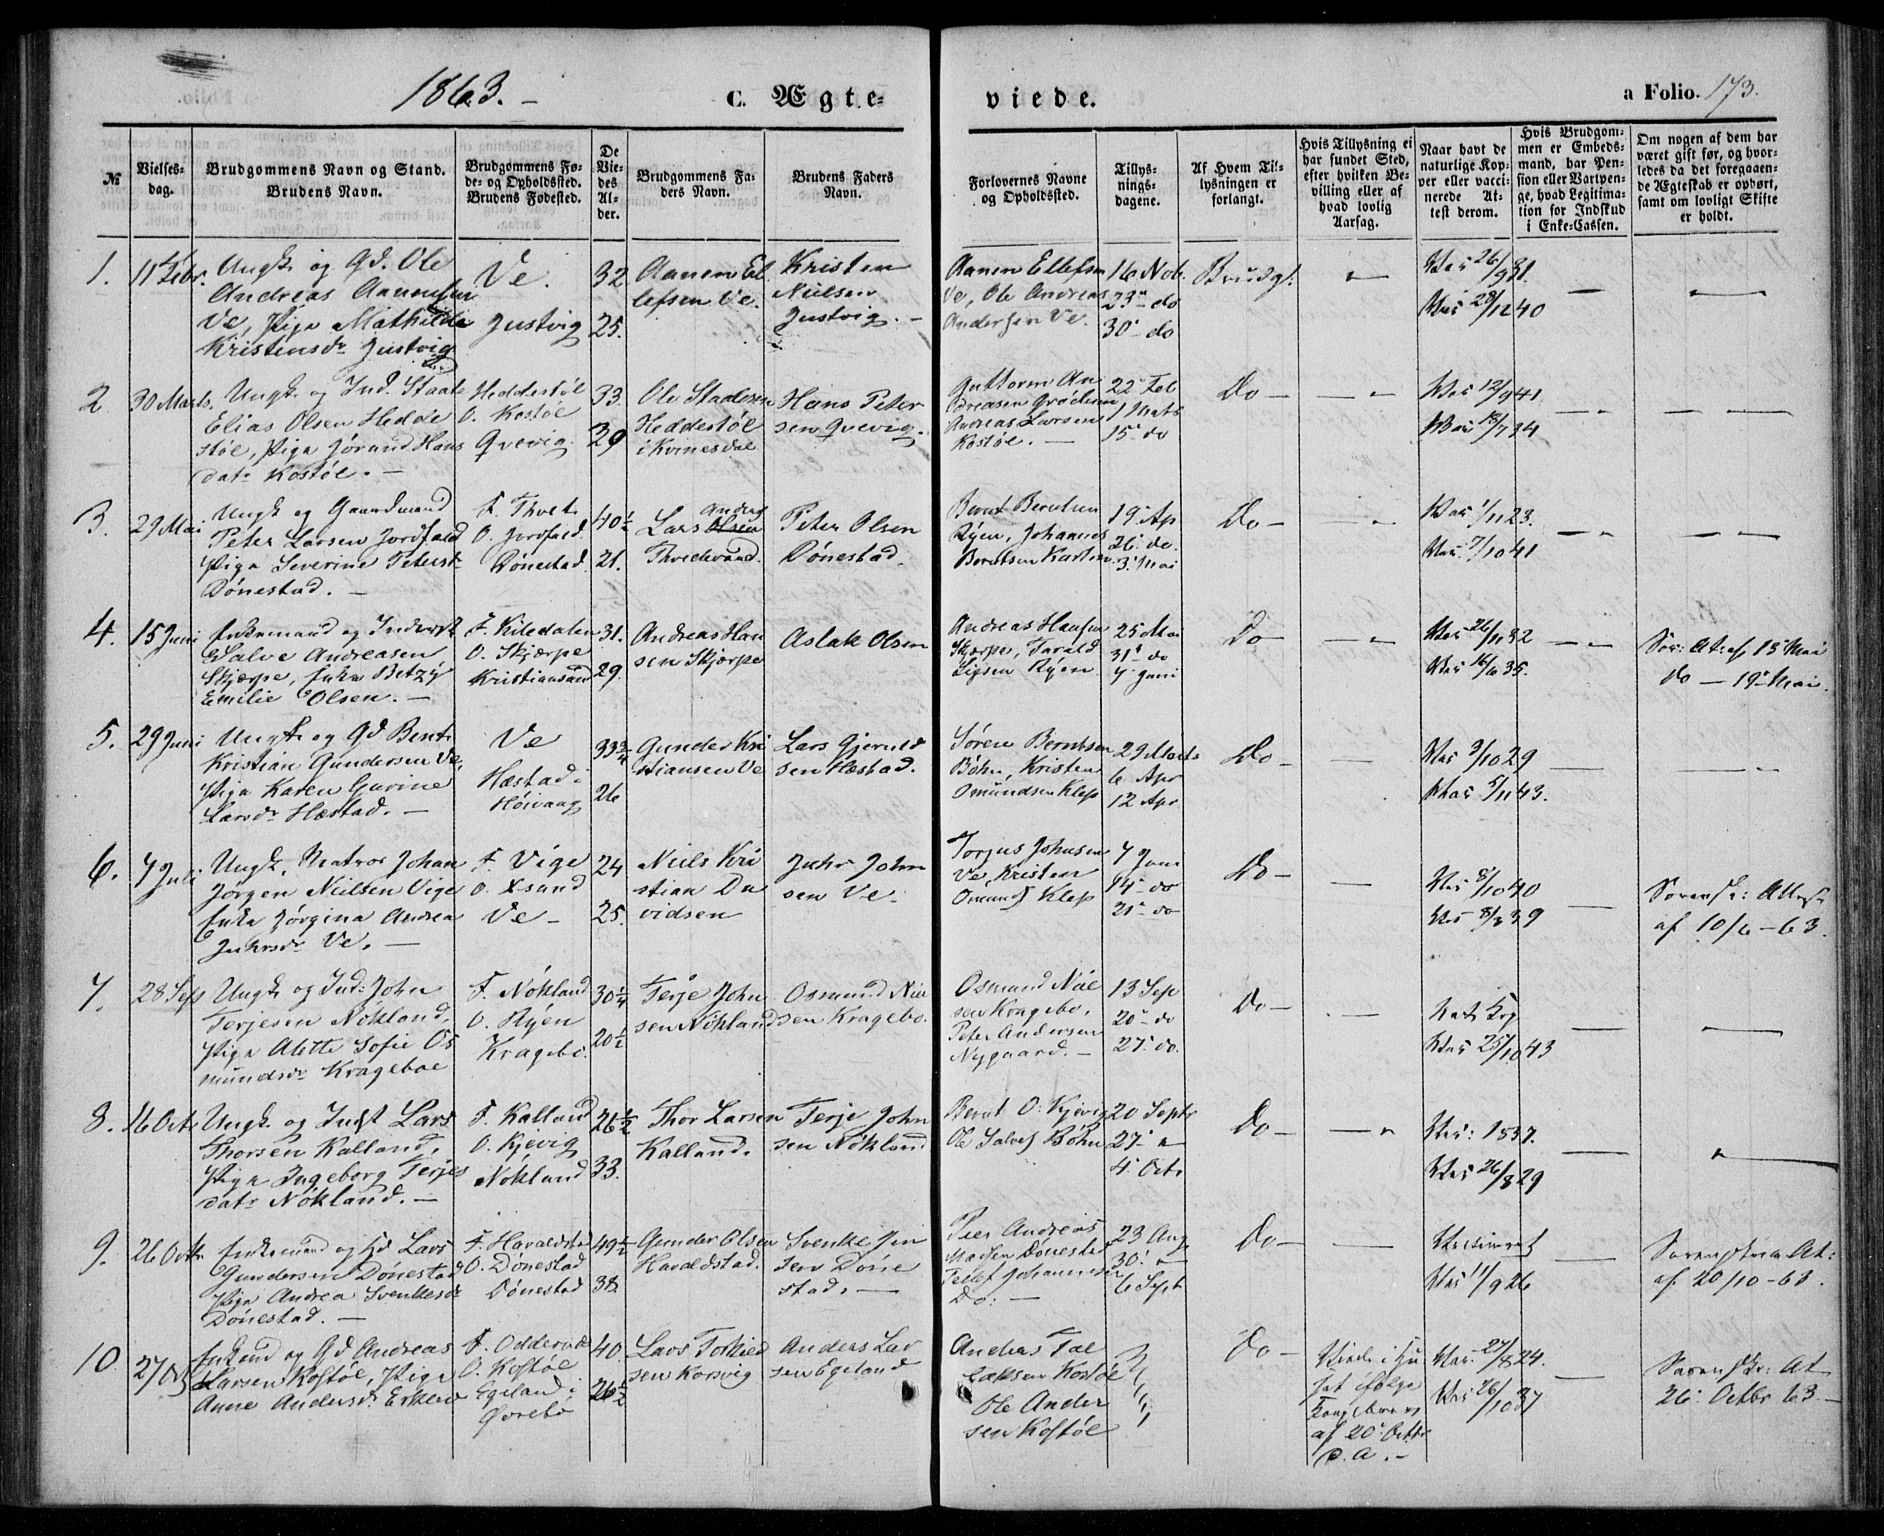 1863.
C. Ægte-
viede.
a Folio. 173.
№
Vielses-
dag.
Brudgommens Navn og Stand.
Brudens Navn.
Brudgommens Fø-
de- og Opholdssted.
Brudens Fødested.
De
Vie-
des
Al-
der.
Brudgommens Fa-
ders Navn.
Brudens Faders
Navn.
Forlovernes Navne
og Opholdssted.
Tillys-
nings-
dagene.
Af Hvem Til-
lysningen er
forlangt.
Hvis Tillysning ei
har fundet Sted,
efter hvilken Be-
villing eller af
hvad lovlig
Aarsag.
Naar havt de
naturlige Kop-
per eller vacci-
nerede At-
test derom.
Hvis Brudgom-
men er Embeds-
mand, har Pen-
sion eller Vartpen-
ge, hvad Legitima-
tion for Indskud
i Enke-Cassen.
Om nogen af dem har
været gift før, og hvor-
ledes da det foregaaen-
de Ægteskab er ophørt,
samt om lovligt Skifte
er holdt.
1.
11 Febr.
Ungk. og Gd. Ole
Andreas Aanensen
Ve, Pige Mathilde
Kristensdr Justvig
Ve.
Justvig
32
25.
Aanen El
lefsen Ve.
Kristen
Nielsen
Justvig.
Aanen Ellefsen
Ve, Ole Andreas
Andersen Ve.
16 Nob.
23 do
30 do
Brudg.
Vac 29/12 40
2
30 Marts.
Ungk. og Ind. Staale
Elias Olsen Hedde
støl, Pige Jørand Hans
datr Kostøl.
Heddestøl
O. Kostøl
Qvevig.
33.
29
Ole Staalesen
Heddestøl
i Kvinesdal
Hans Peter
sen Qvevig.
Guttorm An
dreasen
Andreas Larsen
Kostøl.
22 Feb
1 Marts
15 do
Do
Vac 12/9 41.
3.
29 Mai
Ungk og Gaardmand
Peter Larsen Jordfald
Pige Severine Petersd.
Dönestad.
F. Thvet.
O. Jordfald.
Dönestad.
40½
21.
Lars Olsen
Peter Olsen
Dönestad.
Bernt Berntsen
Ryen, Johannes
Berntsen
19 Ap
26 do.
3 Mai
Do
Vac 1/11 23.
Vac 7/10 41
4.
15 Juni
Enkemand og Inderst
Salve Andreasen
Skjærpe, Enke Betzy
Emilie Olsen.
F. Kiledalen
O. Skjærpe
Kristiansand
31.
29.
Andreas Han
sen Skjærpe
Aslak Olsen
Andreas Hansen
Skjærpe, Tarald
Ryen
25 Mai
31 do
7 Juni
Do
Vac 26/11 32
Vac 16/6 35.
Sor: At af 13 Mai
do — 19 Mai.
5.
29 Juni
Ungk og Gd Bent
Kristian Gundersen Ve,
Pige Karen Gurine
Larsdr Hæstad.
Ve
Hæstad
Høivaag
33¾
26
Gunder Kri
stiansen Ve
Lars Gjeruld
sen Hæstad.
Sören Berntsen
Böhn, Kristen
Omundsen Klep
29 Marts
6 Apr
12 Apr
Do
Vac 3/10 29
Vac 5/11 43.
6.
7 Juli
Ungk, Matros Johan
Jörgen Nielsen Vige
Enke Jörgina Andrea
Juhrsdr Ve.
F. Vige
O. Xsand
Ve
24
25.
Niels Kri
stian Da
vidsen
Juhr John
sen Ve.
Torjus Johnsen
Ve, Kristen
Omunds Klep
7 Juni
14 do
21 do
Do
Vac 8/10 40
Vac 8/3 39
Sorensk: Attest
af 10/6-63.
7.
28 Sep
Ungk og Ind: John
Terjesen Nökland,
Pige Alette Sofie Os
mundsdr Krageboe
F. Nökland
O. Ryen
Kragebö.
30¼
20½
Terje John
sen Nökland
Osmund Niel
sen Kragebo.
Osmund Niel
sen Kragebo,
Peter Andersen
Nygaard.
13 Sep
20 do
27 do.
Do
Vac 25/10 43
8.
16 Octr
Ungk. og Indst Lars
Thorsen Kalland,
Pige Ingeborg Terjes
datr Nökland.
F. Kalland
O. Kjevig
Nökland
26½
33.
Thor Larsen
Kalland.
Terje John
sen Nökland
Bernt O: Kjevig
Ole Salves Böhn
20 Septr
27
4 Octr
Do
Vac: 1837.
Vac 26/8 29
9.
26 Octr
Enkemand og Gd Lars
Gundersen Dönestad
Pige Andrea Svenkesdr
Dönestad.
F. Haraldstad
O. Dönestad
Dönestad
49½
38
Gunder Olsen
Haraldstad.
Svenke Jen
sen Döne
stad.
Peer Andreas
Madsen Dönestad
Tellef Johannesen
Do:
23 Aug
30
6 Sept
Do
Vac 11/9 26
Sorenskrn At:
af 20/10-63.
10.
27 Oct
Enkemd og Gd Andreas
Larsen Kostöl, Pige
Anne Andersdr
O. Kostöl
Egeland
40.
26½
Lars Torkild
sen Korsvig
Anders Lar
sen Egeland
Andreas
Kostöl
Ole Ander
sen Kostöl
Do
Viede i Hu
set ifølge
af 20 Octbr
d. A.
Vac. 27/8 24.
Vac 26/10 37
Sorenskr: At
26 Octbr 63